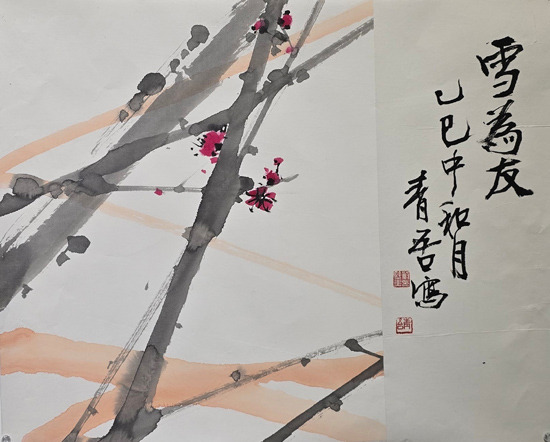 雪為友
乙巳中和月
青吾寫